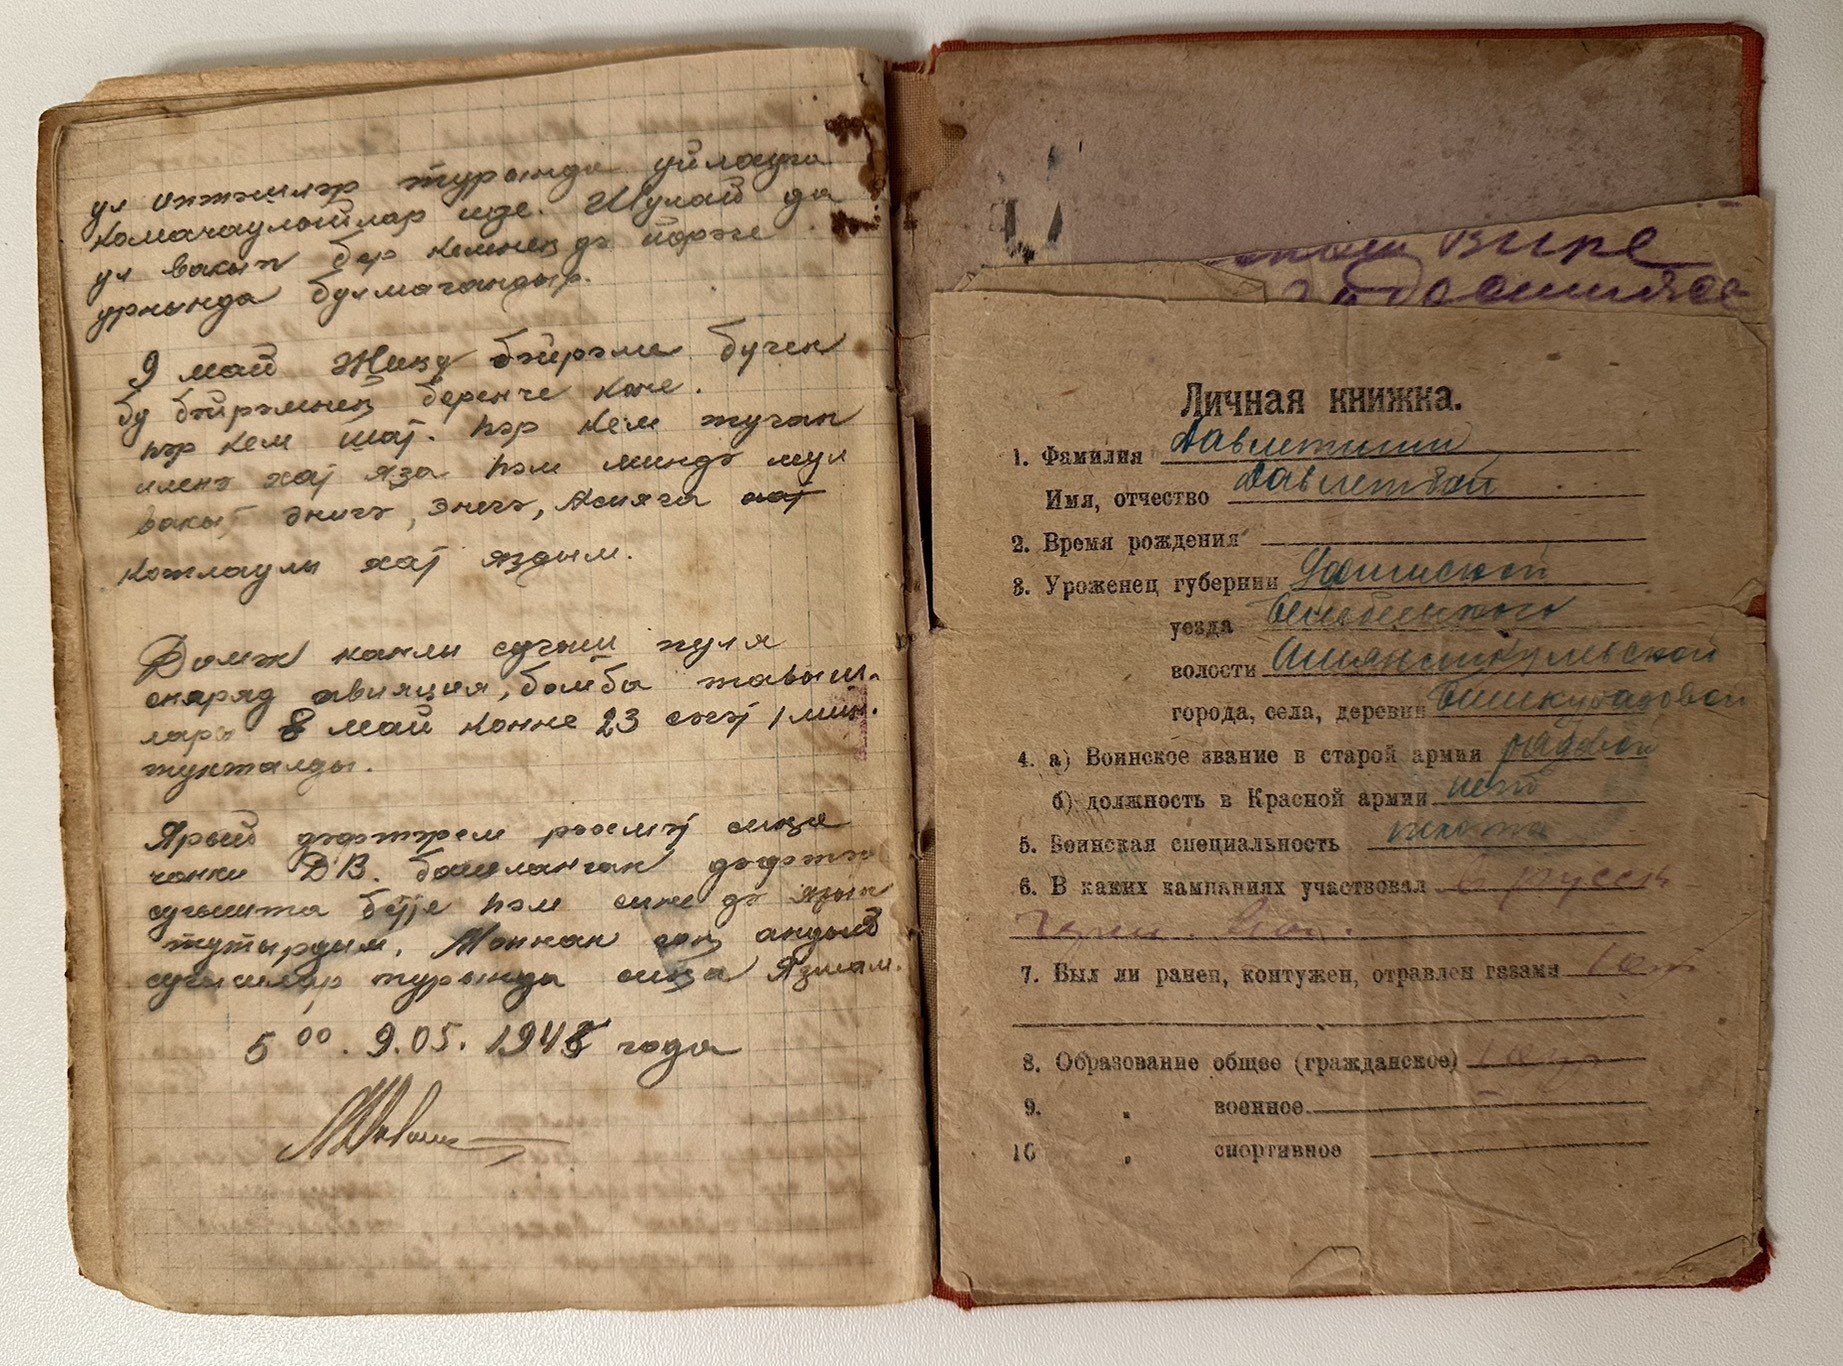 ул турында уйлауга
комачаулыйлар иде. Шулай да
ул вакыт бер кемнең дә йөрәге
урнында булмагандыр.
9 май Жиңү бәйрәме бүген
бу бәйрәмнең беренче көне.
һәр кем шат. һәр кем туган
иленә хат яза һәм миндә шул
вакыт әнигә, әтигә, хат
котлаулы хат яздым.
канлы сугыш пуля
снаряд авияция, бомба тавыш-
лары 8 май көнне 23 сәгәт 1 мин.
тукталды.
Ярый дәфтәрем рәхмәт сиңа
чөнки ДВ. башланган дәфтәр
сугышта бетте һәм сине дә язып
тутырдым. Моннан соң андый
сугышлар турында сиңа язмам.
5 00. 9.05.1945 года
оташ Вире
Личная книжка.
1. Фамилия Давлетшин
Имя, отчество Давлетбай
2. Время рождения
3. Уроженец губернии Уфимской
уезда Белебеевского
волости
города, села, деревни
4. а) Воинское звание в старой армии рядовой
б) должность в Красной армии нет
5. Воинская специальность пехота
6. В каких кампаниях участвовал в русско
герм.
7. Был ли ранен, контужен, отравлен газами
8. Образование общее (гражданское)
9. „ военное
10 „ спортивное